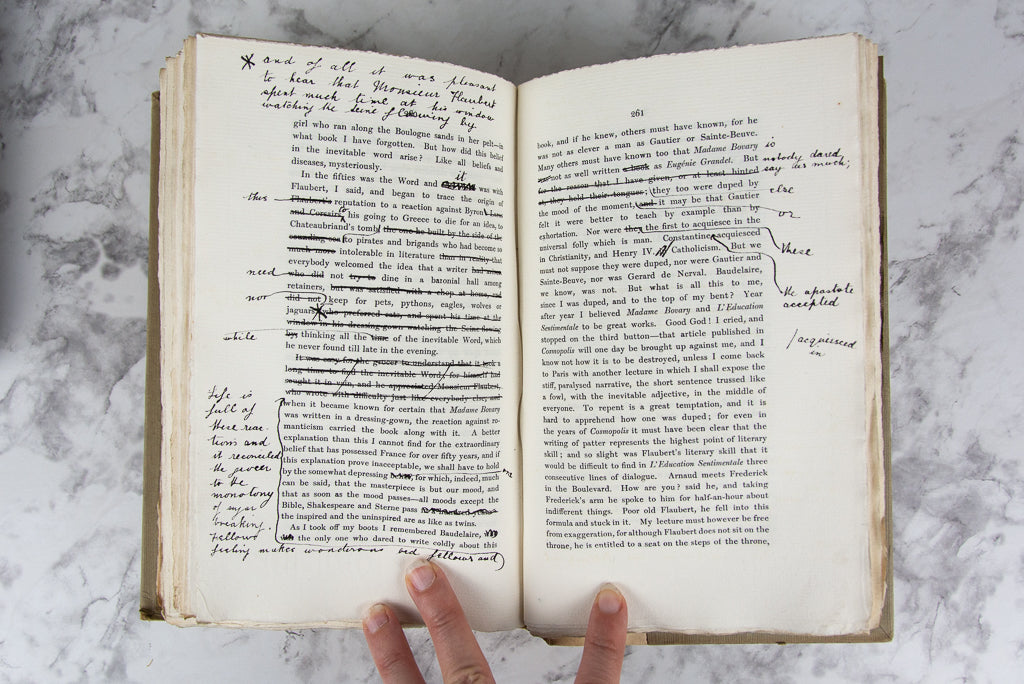 * and of all it was pleasant
to hear that Monsieur Flaubert
spent much time at his window
watching the Seine flowing by
girl who ran along the Boulogne sands in her pelt—in
what book I have forgotten. But how did this belief
in the inevitable word arise? Like all beliefs and
diseases, mysteriously.
it
In the fifties was the Word and was with
Flaubert, I said, and began to trace the origin of
this
Flaubert's reputation to a reaction against Byron's Lara
and Corsair, his going to Greece to die for an idea, to
to
Chateaubriand's tomb, the one he built by the side of the
sounding sea, to pirates and brigands who had become so
much more intolerable in literature than in reality that
everybody welcomed the idea that a writer had
need
who did not try to dine in a baronial hall among
retainers, but was satisfied with a chop at home, and
nor
did not keep for pets, pythons, eagles, wolves or
jaguars, who preferred cats, and spent his time at the
window in his dressing-gown watching the Seine flowing
while
by, thinking all the time of the inevitable Word, which
he never found till late in the evening.
It was easy for the grocer to understand that it took a
long time to find the inevitable Word, for himself had
sought it in vain, and he appreciated Monsieur Flaubert,
who wrote with difficulty just like everybody else, and
when it became known for certain that Madame Bovary
was written in a dressing-gown, the reaction against ro-
manticism carried the book along with it. A better
explanation than this I cannot find for the extraordinary
belief that has possessed France for over fifty years, and if
this explanation prove inacceptable, we shall have to hold
by the somewhat depressing for which, indeed, much
one
can be said, that the masterpiece is but our mood, and
that as soon as the mood passes—all moods except the
Bible, Shakespeare and Sterne pass
the inspired and the uninspired are as like as twins.
As I took off my boots I remembered Baudelaire,
the only one who dared to write coldly about this
Life is
full of
these reac-
tions and
it reconciled
the grocer
to the
monotony
of sugar
breaking.
Fellow
feeling makes wonderous kind fellows and
261
book, and if he knew, others must have known, for he
was not as clever a man as Gautier or Sainte-Beuve.
Many others must have known too that Madame Bovary is
not as well written a book as Eugénie Grandet. But nobody dared
say as much;
for the reason that I have given, or at least hinted
at, they held their tongues; they too were duped by
else
the mood of the moment, and it may be that Gautier
felt it were better to teach by example than by
or
exhortation. Nor were they the first to acquiesce in the
these
universal folly which is man. Constantine acquiesced
in Christianity, and Henry IV. Catholicism. But we
the apostate
accepted
must not suppose they were duped, nor were Gautier and
Sainte-Beuve, nor was Gerard de Nerval. Baudelaire,
we know, was not. But what is all this to me,
since I was duped, and to the top of my bent? Year
after year I believed Madame Bovary and L'Education
Sentimentale to be great works. Good God! I cried, and
/acquiesced
in
stopped on the third button—that article published in
Cosmopolis will one day be brought up against me, and I
know not how it is to be destroyed, unless I come back
to Paris with another lecture in which I shall expose the
stiff, paralysed narrative, the short sentence trussed like
a fowl, with the inevitable adjective, in the middle of
everyone. To repent is a great temptation, and it is
hard to apprehend how one was duped; for even in
the years of Cosmopolis it must have been clear that the
writing of patter represents the highest point of literary
skill; and so slight was Flaubert's literary skill that it
would be difficult to find in L'Education Sentimentale three
consecutive lines of dialogue. Arnaud meets Frederick
in the Boulevard. How are you? said he, and taking
Frederick's arm he spoke to him for half-an-hour about
indifferent things. Poor old Flaubert, he fell into this
formula and stuck in it. My lecture must however be free
from exaggeration, for although Flaubert does not sit on the
throne, he is entitled to a seat on the steps of the throne,